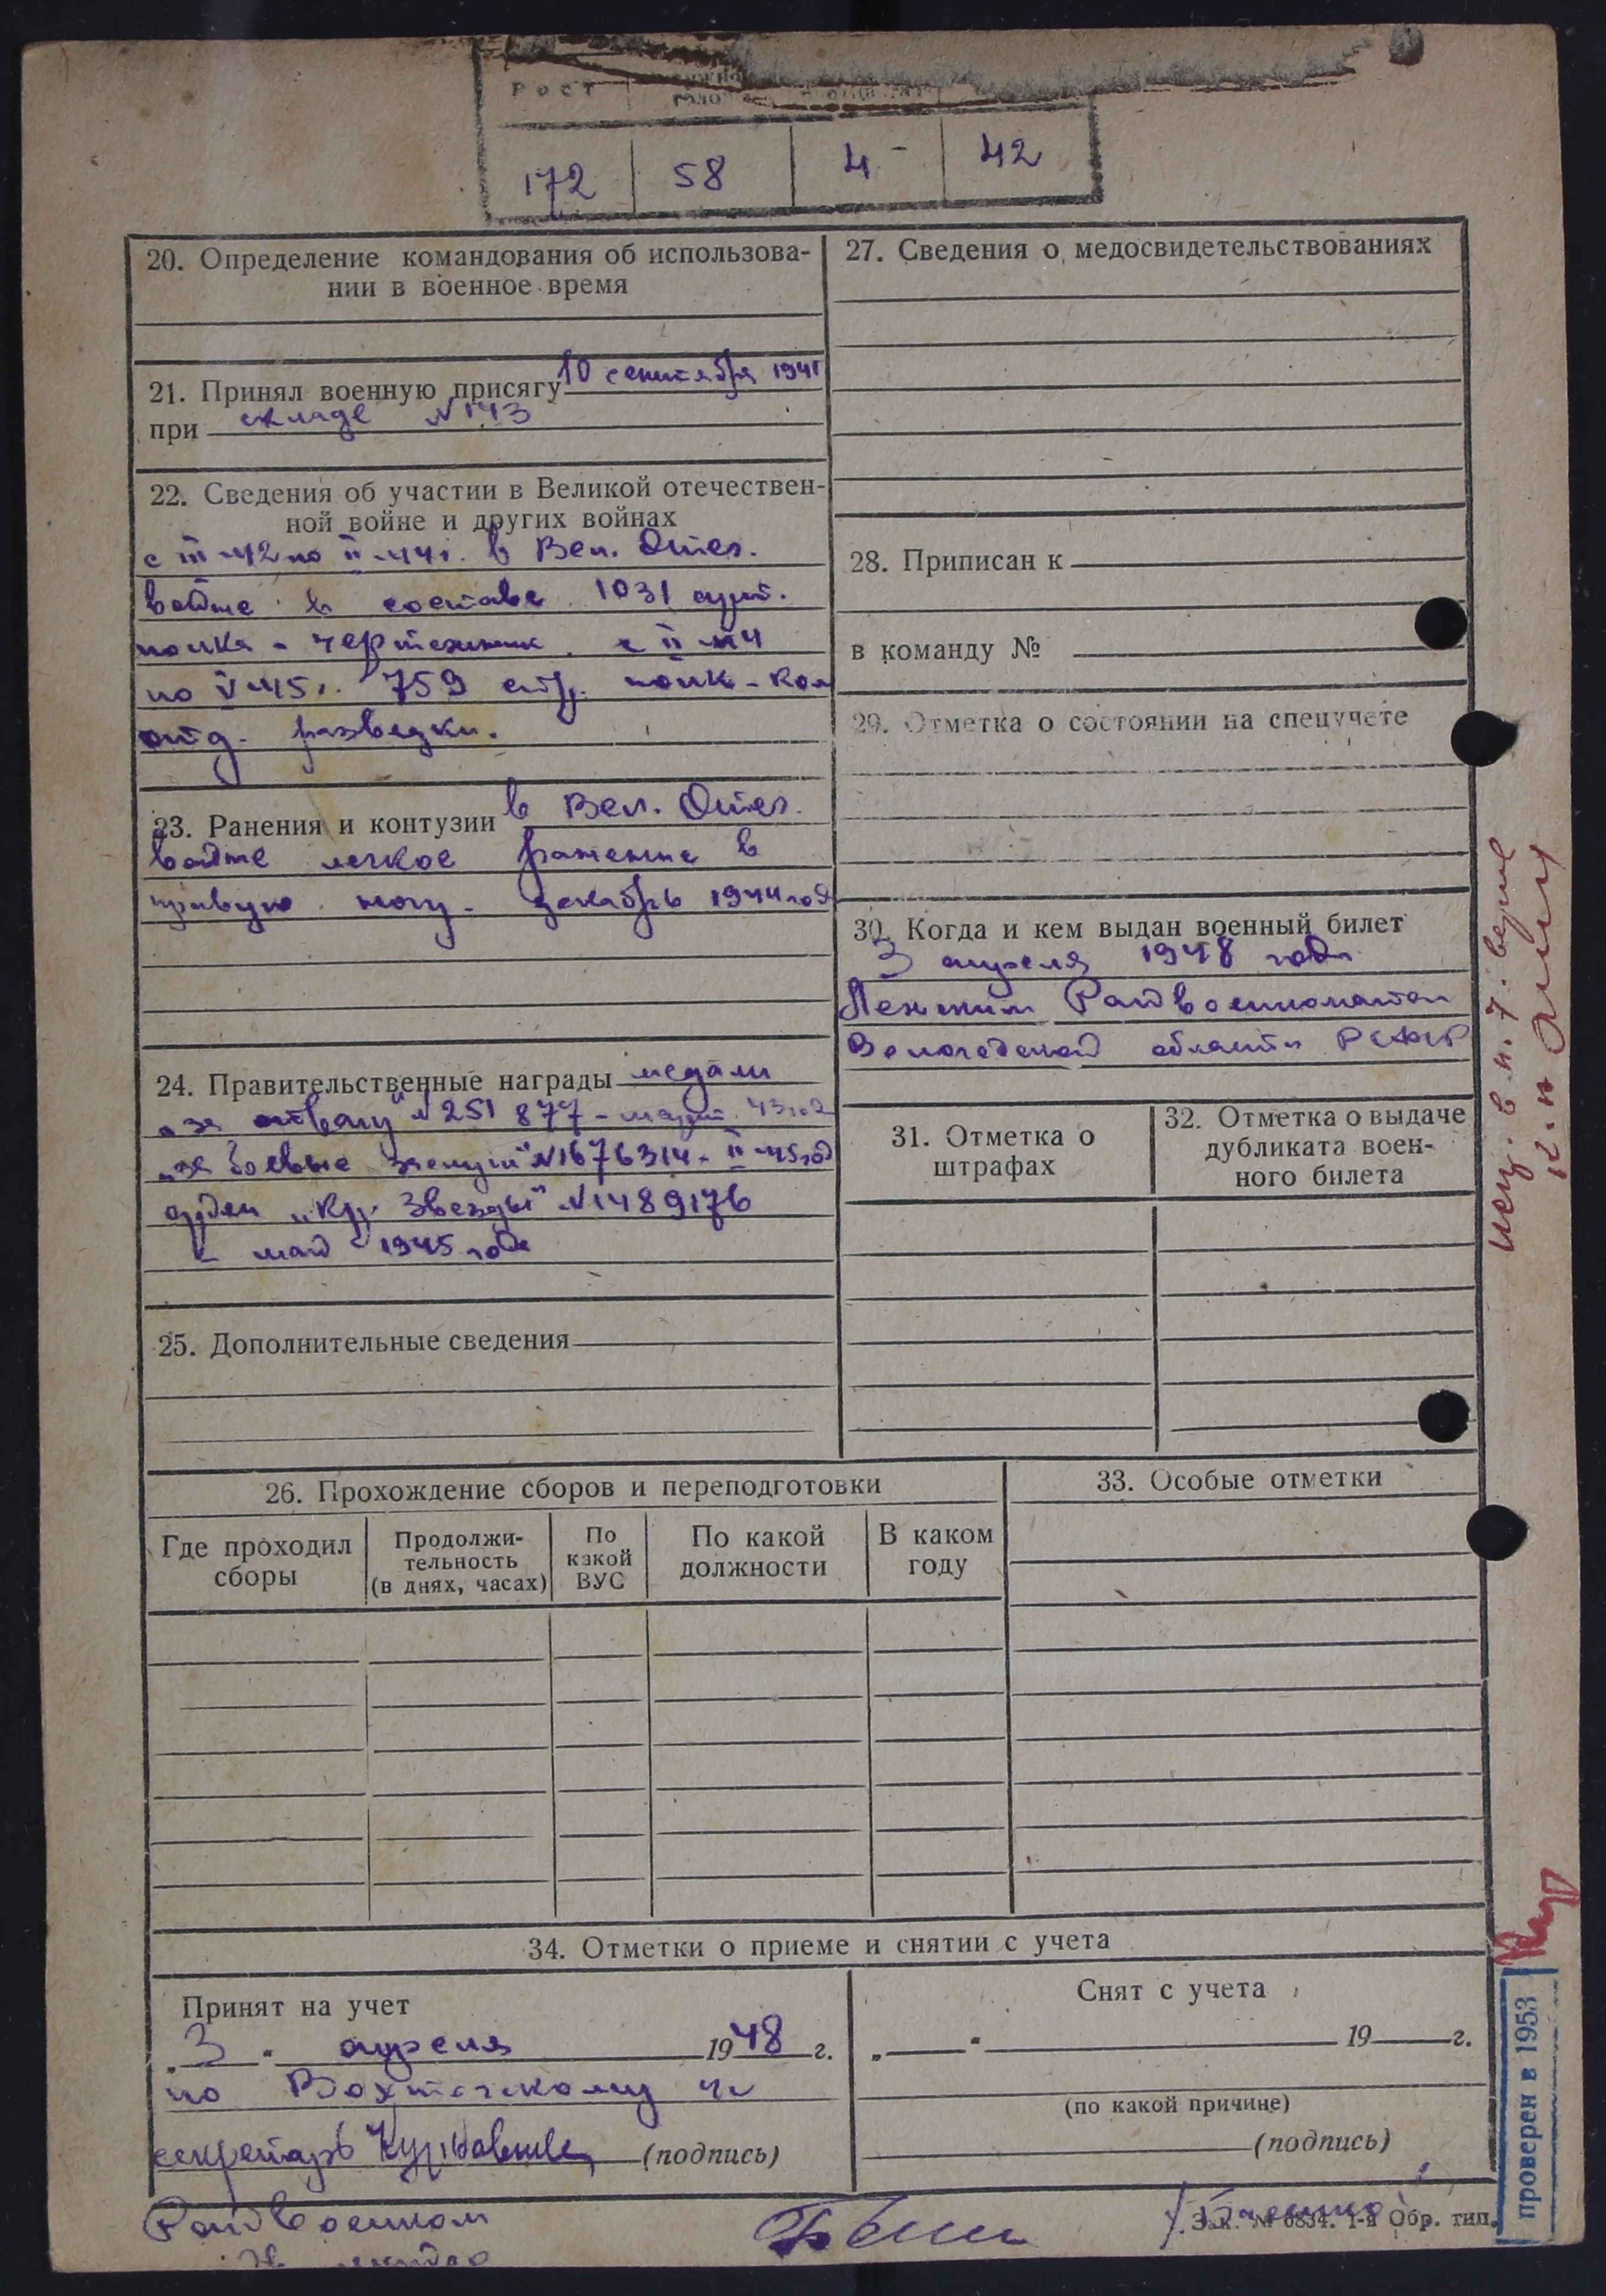 РОСТ
172 58 4- 42
20. Определение командования об использова-
нии в военное время
21. Принял военную присягу 10 сентября 1941
при складе №143
22. Сведения об участии в Великой отечествен-
ной войне и других войнах
с III-42 по II-44г. в Вел. Отеч.
войне в составе 1031 арт.
полка - чертежник. с II-44
по V-45г. 759 стр. полк - ком
отд. разведки.
23. Ранения и контузии в Вел. Отеч.
войне легкое ранение в
правую ногу - декабрь 1944 год
24. Правительственные награды медали
„за отвагу" №251877 - 43год
„за боевые заслуги" №1676314 - II-45год
орден „Кр. Звезды" №1489176
- май 1945 года
25. Дополнительные сведения
26. Прохождение сборов и переподготовки
Где проходил
сборы
Продолжи-
тельность
(в днях, часах)
По
какой
ВУС
По какой
должности
В каком
году
27. Сведения о медосвидетельствованиях
28. Приписан к
в команду №
29. Отметка о состоянии на спецучете
30. Когда и кем выдан военный билет
3 апреля 1948 года
Райвоенкоматом
Вологодской области РСФСР
31. Отметка о
штрафах
32. Отметка о выдаче
дубликата воен-
ного билета
33. Особые отметки
34. Отметки о приеме и снятии с учета
Принят на учет
„3" апреля 1948 г.
по Вохтожскому
секретарь (подпись)
Снят с учета
„ " 19 г.
(по какой причине)
(подпись)
Райвоенком
Зак. № 6834. 1-я Обр. тип.
исп. в п. 7. верно
проверен в 1953